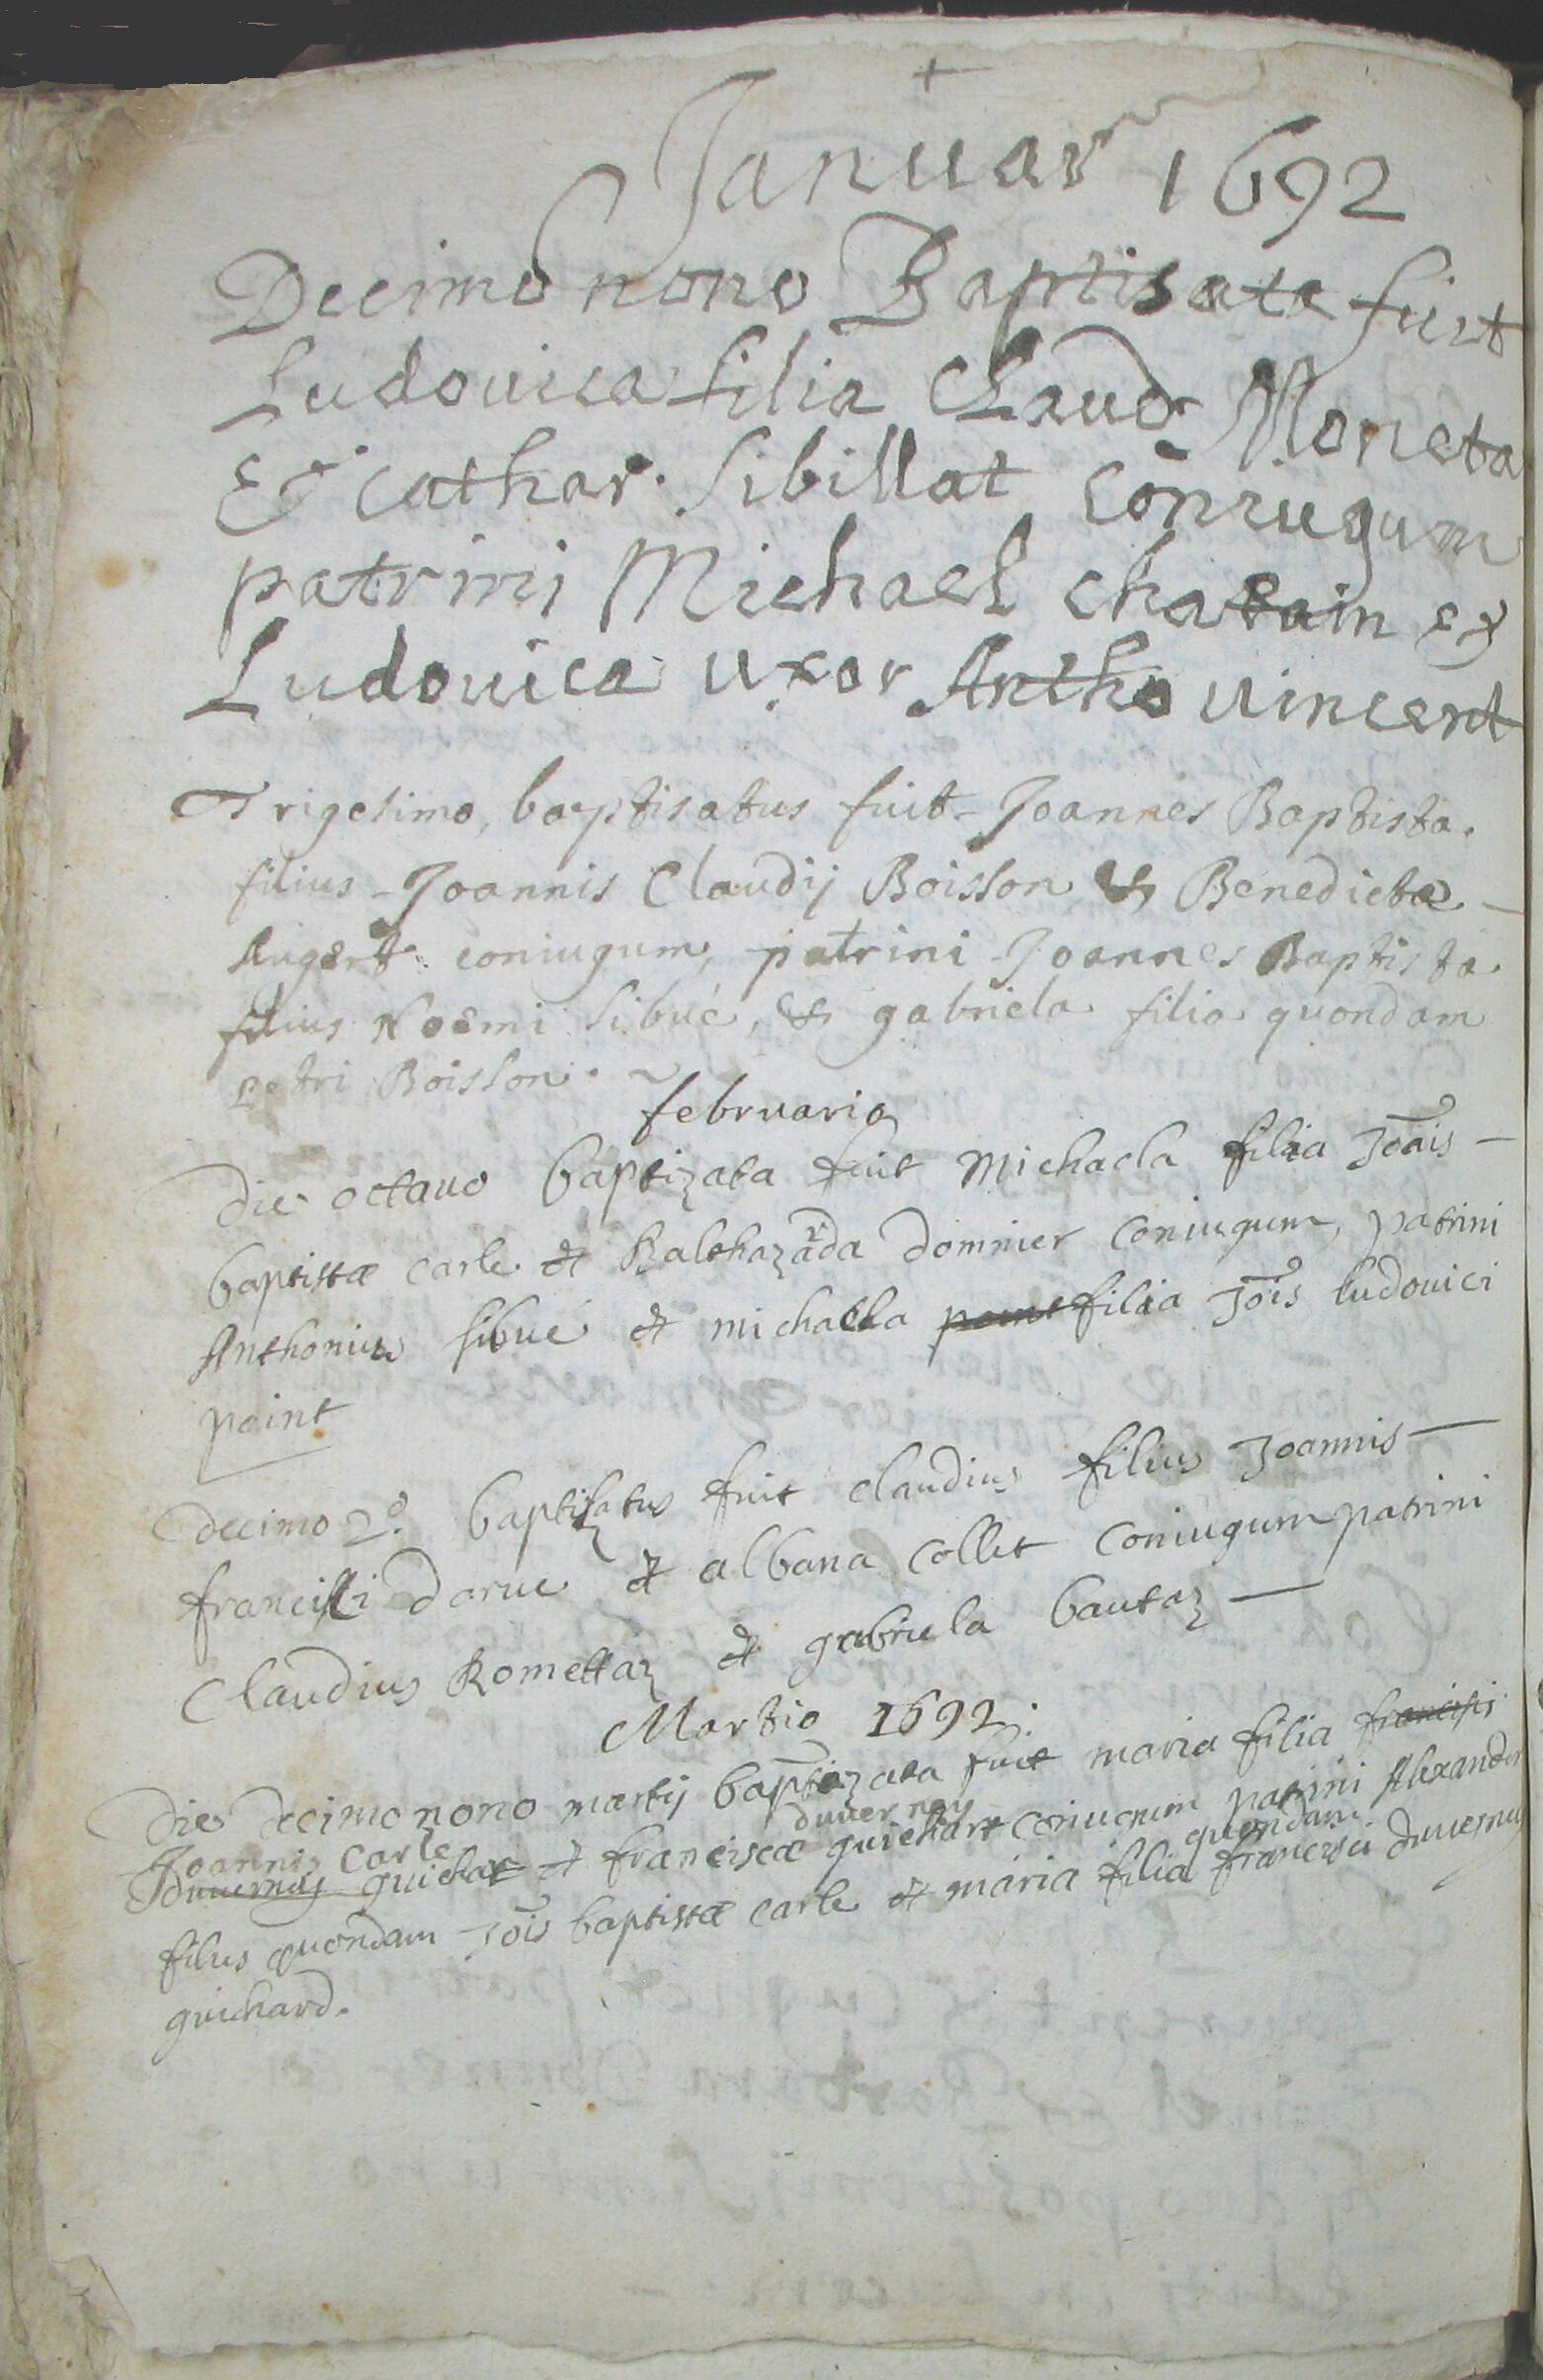 +
Januar 1692
Decimo nono Baptisata fuit
Ludouica filia Claud Moneta
Et cathar. Sibillat coniugum
patrini Michael chatain et
Ludouica uxor Antho vincent
Trigesimo, baptisatus fuit Joannes Baptista
filius Joannis Claudij Boisson & Benedictæ
Augert coniugum, patrini Joannes Baptista
filius Noëmi Sibué, & gabriela filia quondam
petri Boisson.
februario
Die octauo baptizata fuit Michaela filia Jōais
baptistæ carle et Balthazarda domnier coniugum, patrini
Anthonius sibué et michaella point filia Jōis ludouici
point
decimo 2º. baptisatus fuit claudius filius Joannis
francisci darue et albana collet coniugum patrini
Claudius Romettaz et gabriela bautaz
Martio 1692.
die decimo nono martij baptizata fuit maria filia francisci
duuernay
Joannis Carle
duuernaj guichar et franciscæ guichart coniugum patrini Alexander
quondam
filius quondam Jōis baptistæ carle et maria filia francisci duuernay
guichard.